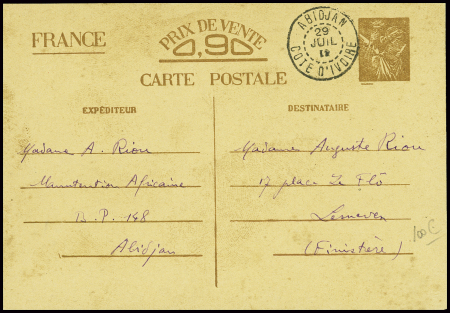 FRANCE
PRIX DE VENTE
0,90
CARTE POSTALE
ABIDJAN
29
JUIL
COTE D'IVOIRE
EXPÉDITEUR
Madame A. Riou
Manutention Africaine
B.P. 148
Abidjan
DESTINATAIRE
Madame Auguste Riou
17 place Le Flô
Lesneven
(Finistère)
100 €